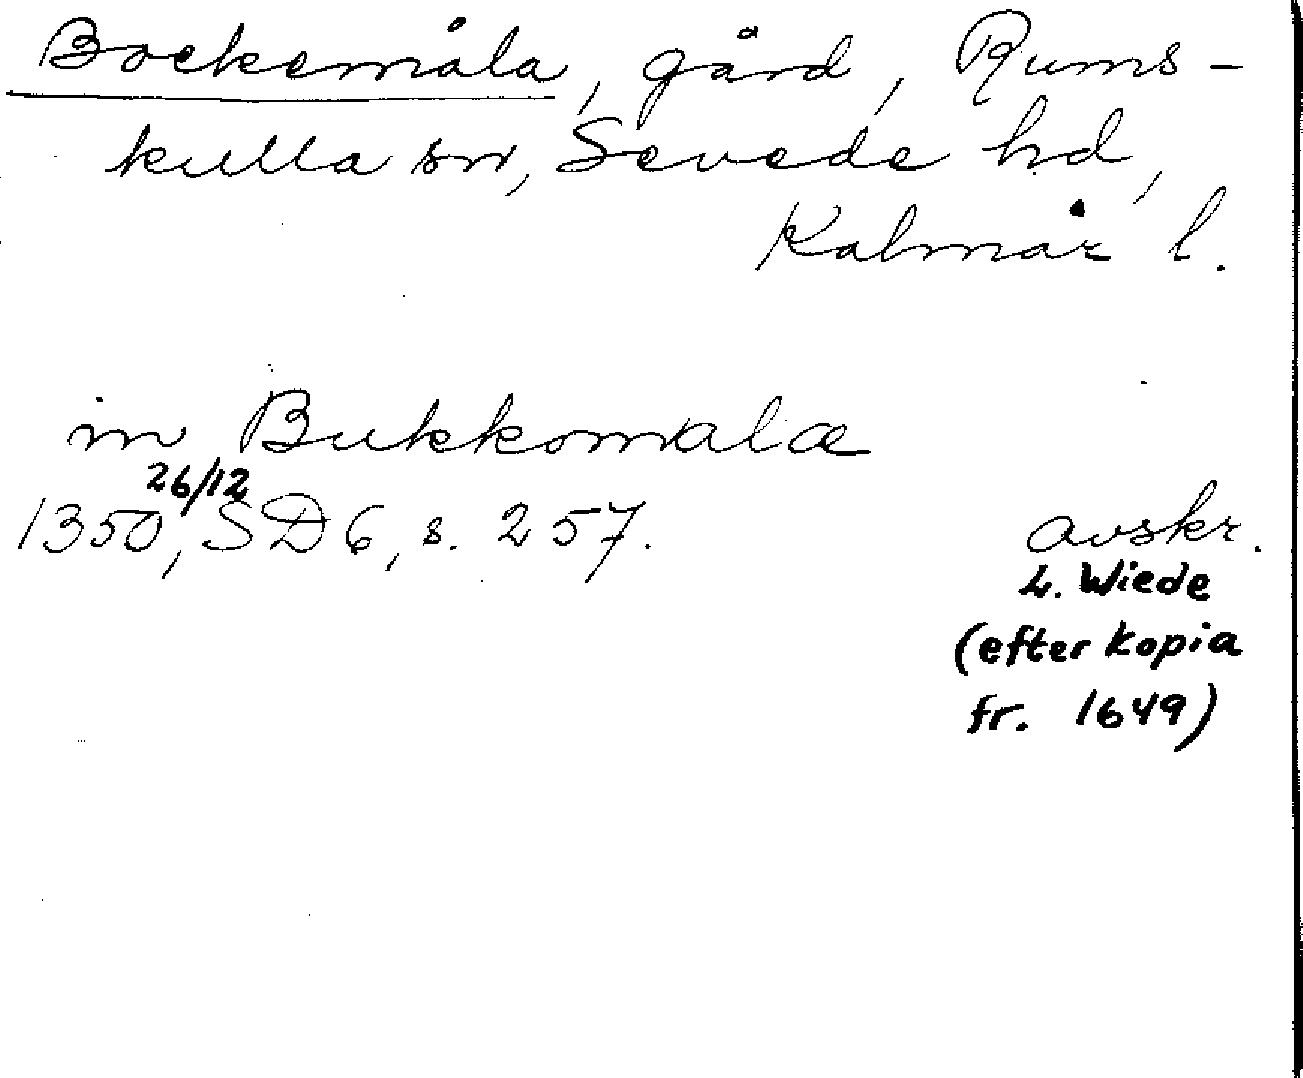 Bockemåla, gård, Rums-
kulla sn, Sevede hd,
Kalmar l.
in Bukkomalæ
26/12
1350, SD 6, s. 257.
avskr.
L. Wiede
(efter kopia
fr. 1649)